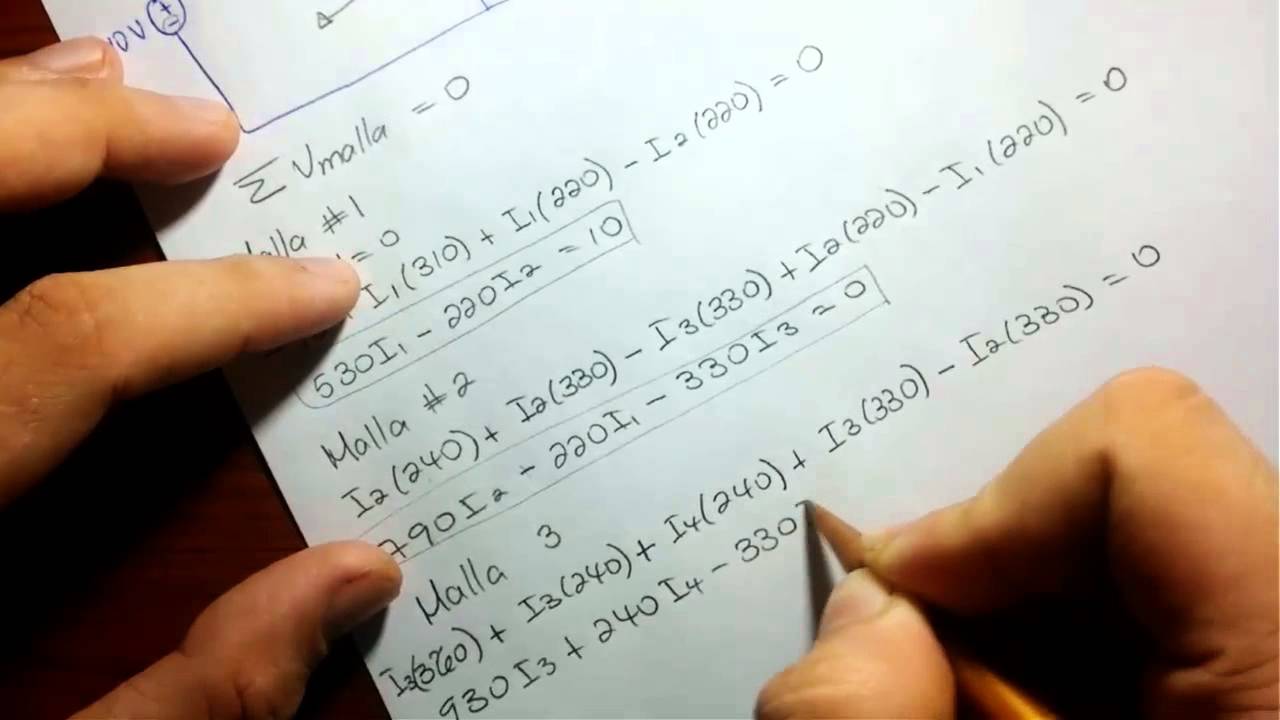 10V
Σ Vmalla = 0
Malla #1
= 0
I₁(310) + I₁(220) − I₂(220) = 0
530I₁ − 220I₂ = 10
Malla #2
I₂(240) + I₂(330) − I₃(330) + I₂(220) − I₁(220) = 0
790I₂ − 220I₁ − 330I₃ = 0
Malla 3
I₃(360) + I₃(240) + I₄(240) + I₃(330) − I₂(330) = 0
930I₃ + 240I₄ − 330